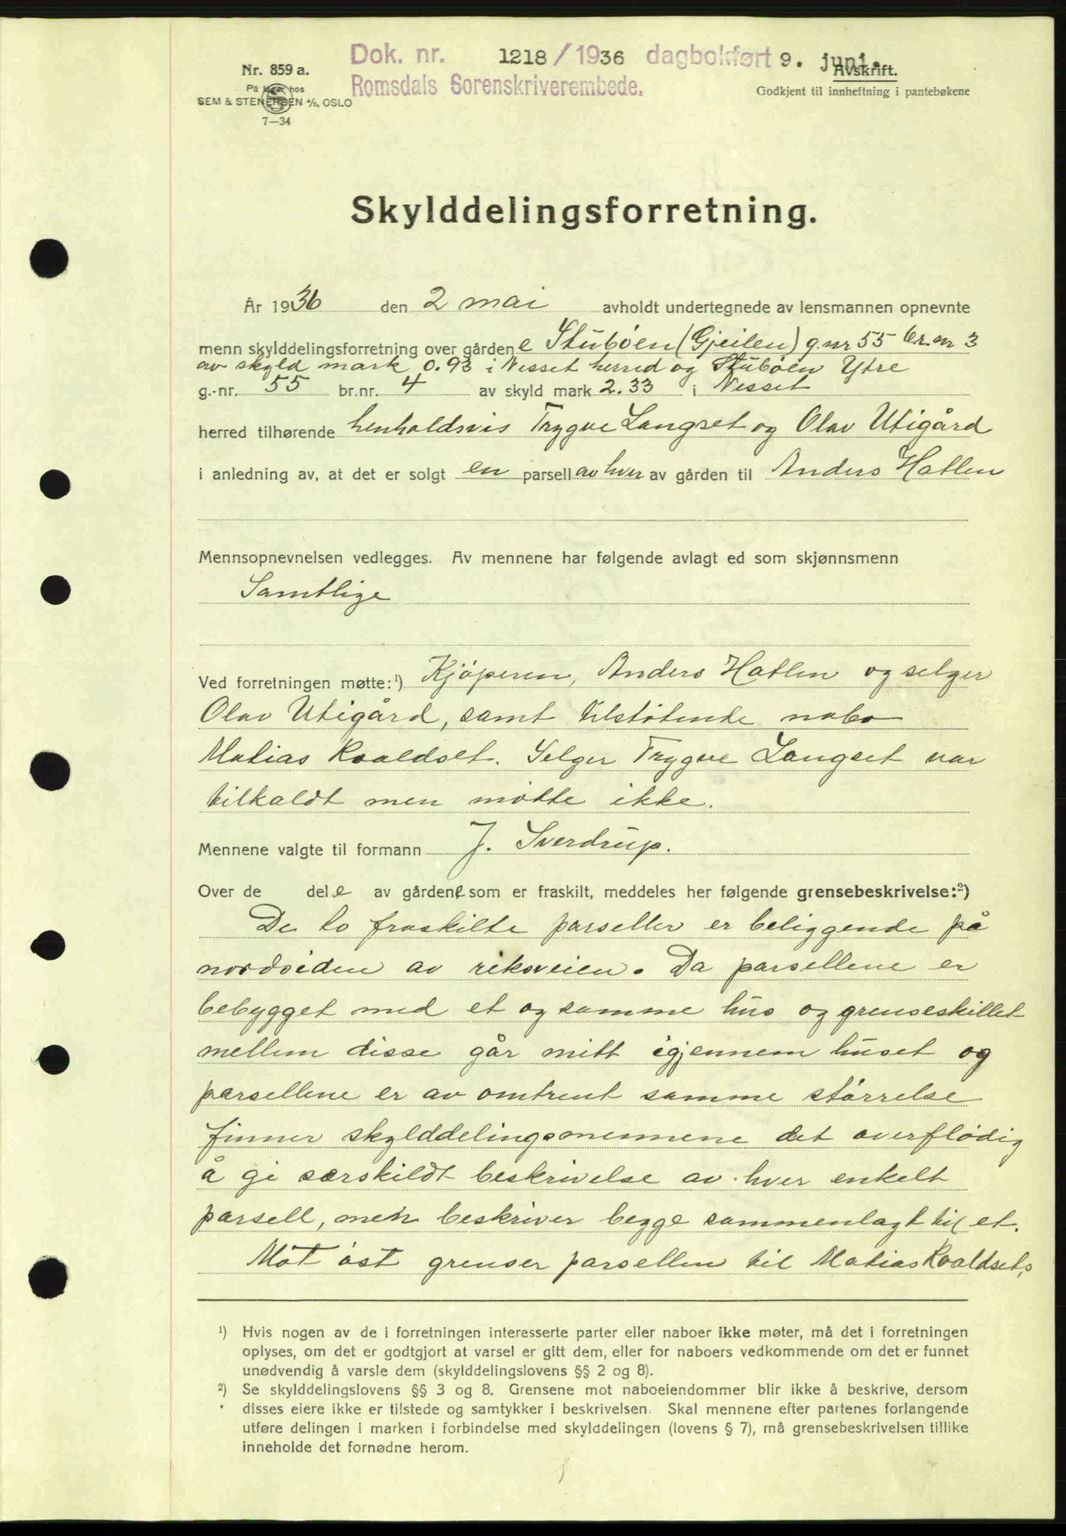 Dok. nr. 1218/1936 dagbokført 9. juni.
Romsdals Sorenskriverembede.
Nr. 859 a.
På lager hos
SEM & STENERSEN A/S, OSLO
7—34
Avskrift.
Godkjent til innheftning i pantebøkene
Skylddelingsforretning.
År 1936 den 2 mai avholdt undertegnede av lensmannen opnevnte
menn skylddelingsforretning over gårdene Stubøen (Gjeilen) g.nr 55 br.nr 3
av skyld mark 0.93 i Nesset herred og Stubøen Ytre
g.-nr. 55 br.nr. 4 av skyld mark 2.33 i Nesset
herred tilhørende henholdsvis Trygve Langset og Olav Utigård
i anledning av, at det er solgt en parsell av hver av gården til Anders Hatlen
Mennsopnevnelsen vedlegges. Av mennene har følgende avlagt ed som skjønnsmenn
Samtlige
Ved forretningen møtte:¹) Kjøperen, Anders Hatlen og selger
Olav Utigård, samt tilstøtende nabo
Matias Roaldset. Selger Trygve Langset var
tilkaldt men møtte ikke.
Mennene valgte til formann J. Sverdrup.
Over de dele av gårdene som er fraskilt, meddeles her følgende grensebeskrivelse:²)
De to fraskilte parseller er beliggende på
nordsiden av riksveien. Da parsellene er
bebygget med et og samme hus og grenseskillet
mellem disse går mitt igjennem huset og
parsellene er av omtrent samme størrelse
finner skylddelingsmennene det overflødig
å gi særskildt beskrivelse av hver enkelt
parsell, men beskriver begge sammenlagt til et.
Mot øst grenser parsellen til Matias Roaldsets
¹) Hvis nogen av de i forretningen interesserte parter eller naboer ikke møter, må det i forretningen
oplyses, om det er godtgjort at varsel er gitt dem, eller for naboers vedkommende om det er funnet
unødvendig å varsle dem (skylddelingslovens §§ 2 og 8).
²) Se skylddelingslovens §§ 3 og 8. Grensene mot naboeiendommer blir ikke å beskrive, dersom
disses eiere ikke er tilstede og samtykker i beskrivelsen. Skal mennene efter partenes forlangende
utføre delingen i marken i forbindelse med skylddelingen (lovens § 7), må grensebeskrivelsen tillike
inneholde det fornødne herom.